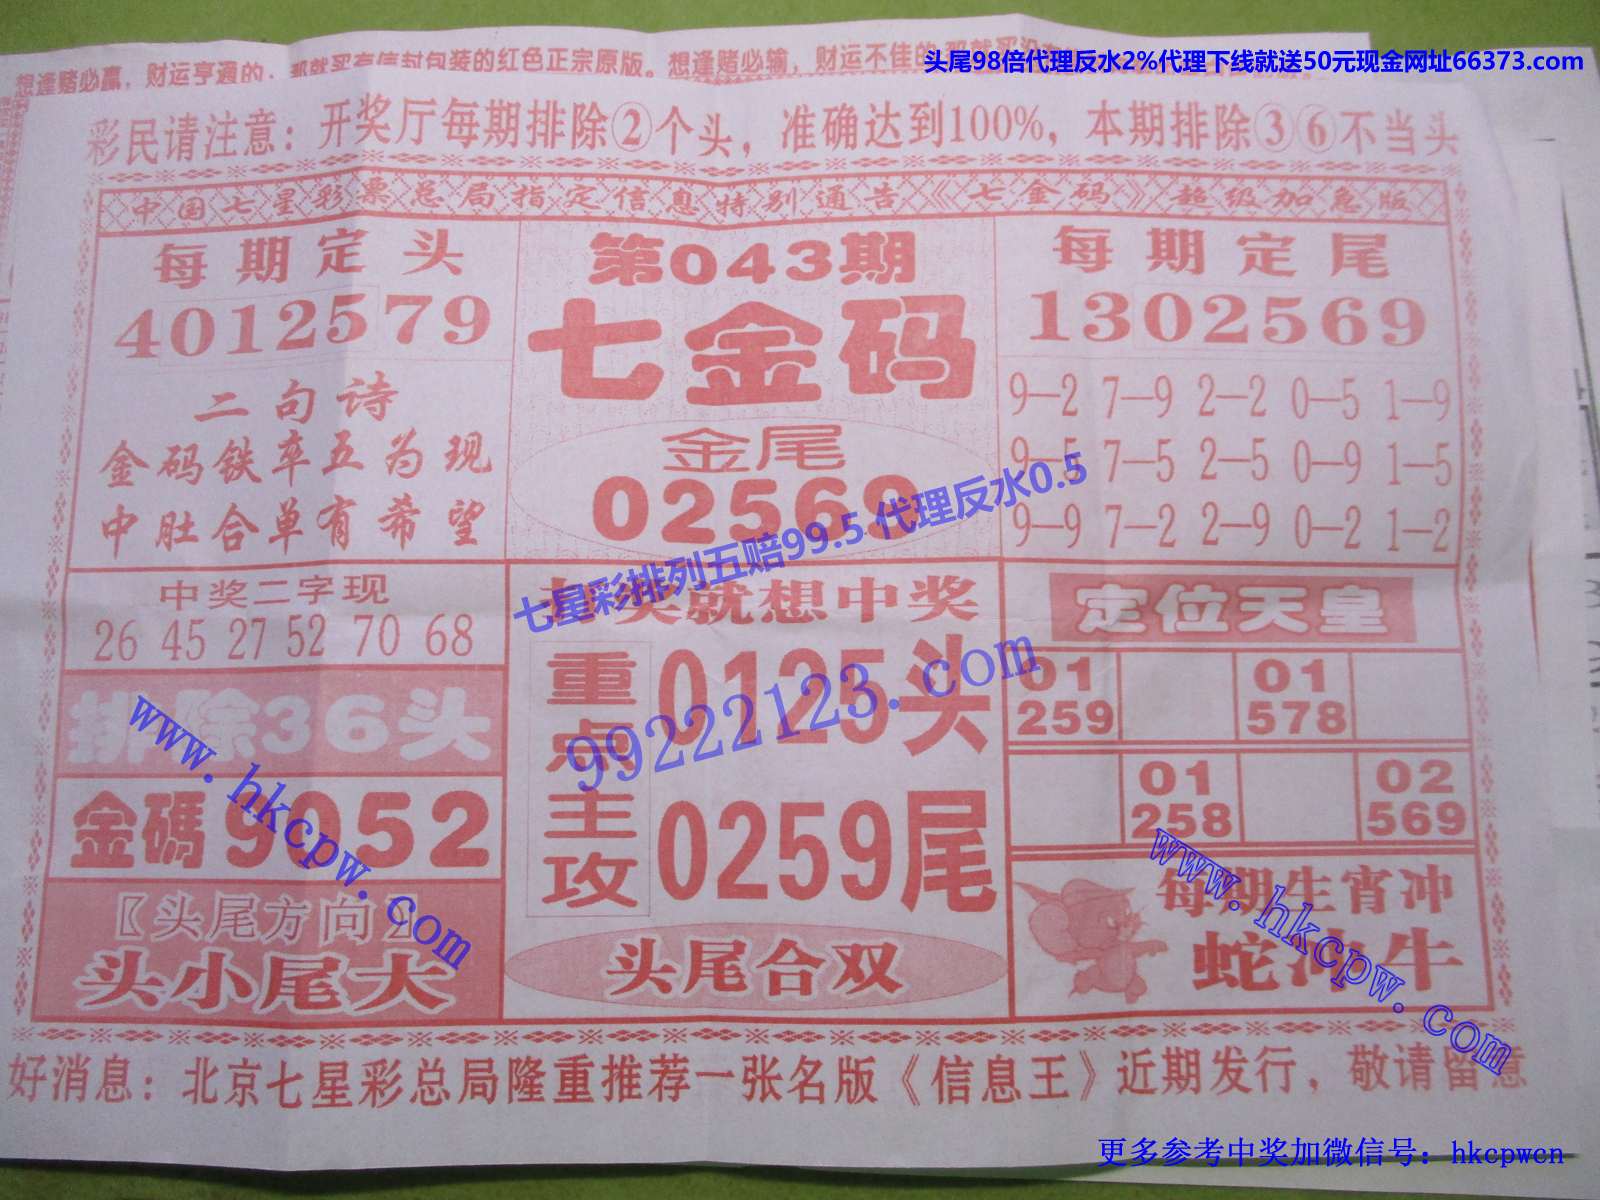 头尾98倍代理反水2%代理下线就送50元现金网址66373.com
想逢赌必赢，财运亨通的，那就买有信封包装的红色正宗原版。想逢赌必输，财运不佳的，那就买没有
彩民请注意：开奖厅每期排除②个头，准确达到100%，本期排除③⑥不当头
中国七星彩票总局指定信息特别通告《七金码》超级加急版
每期定头
4012579
二句诗
金码铁卒五为现
中肚合单有希望
第043期
七金码
金尾
02569
每期定尾
1302569
9—2 7—9 2—2 0—5 1—9
9—5 7—5 2—5 0—9 1—5
9—9 7—2 2—9 0—2 1—2
七星彩排列五赔99.5 代理反水0.5
中奖二字现
26 45 27 52 70 68
排除36头
金碼9052
〖头尾方向〗
头小尾大
就想中奖
重点主攻
0125头
0259尾
头尾合双
定位天皇
01 01
259 578
01 02
258 569
每期生肖冲
蛇冲牛
www.hkcpw.com
99222123.com
www.hkcpw.com
好消息：北京七星彩总局隆重推荐一张名版《信息王》近期发行，敬请留意
更多参考中奖加微信号：hkcpwcn